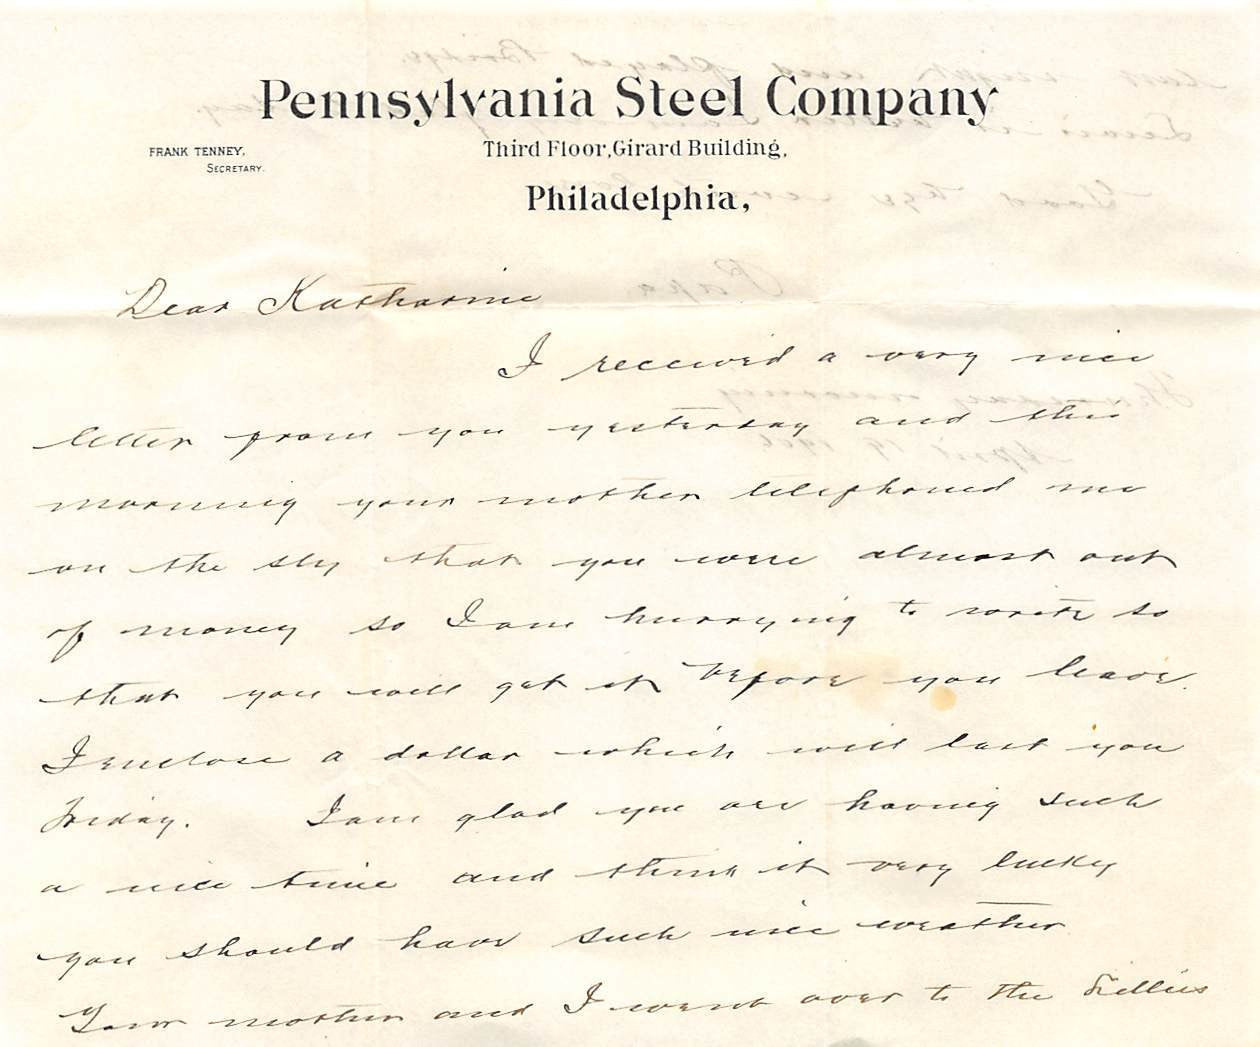 Pennsylvania Steel Company
FRANK TENNEY,
SECRETARY.
Third Floor, Girard Building,
Philadelphia,
Dear Katharine
I received a very nice
letter from you yesterday and this
morning your mother telephoned me
on the sly that you were almost out
of money so I am hurrying to write so
that you will get it before you leave.
I enclose a dollar which will last you
Friday. I am glad you are having such
a nice time and think it very lucky
you should have such nice weather
Your mother and I went over to the
last night and played Bridge.
Good bye
Papa
morning
April 19 1906